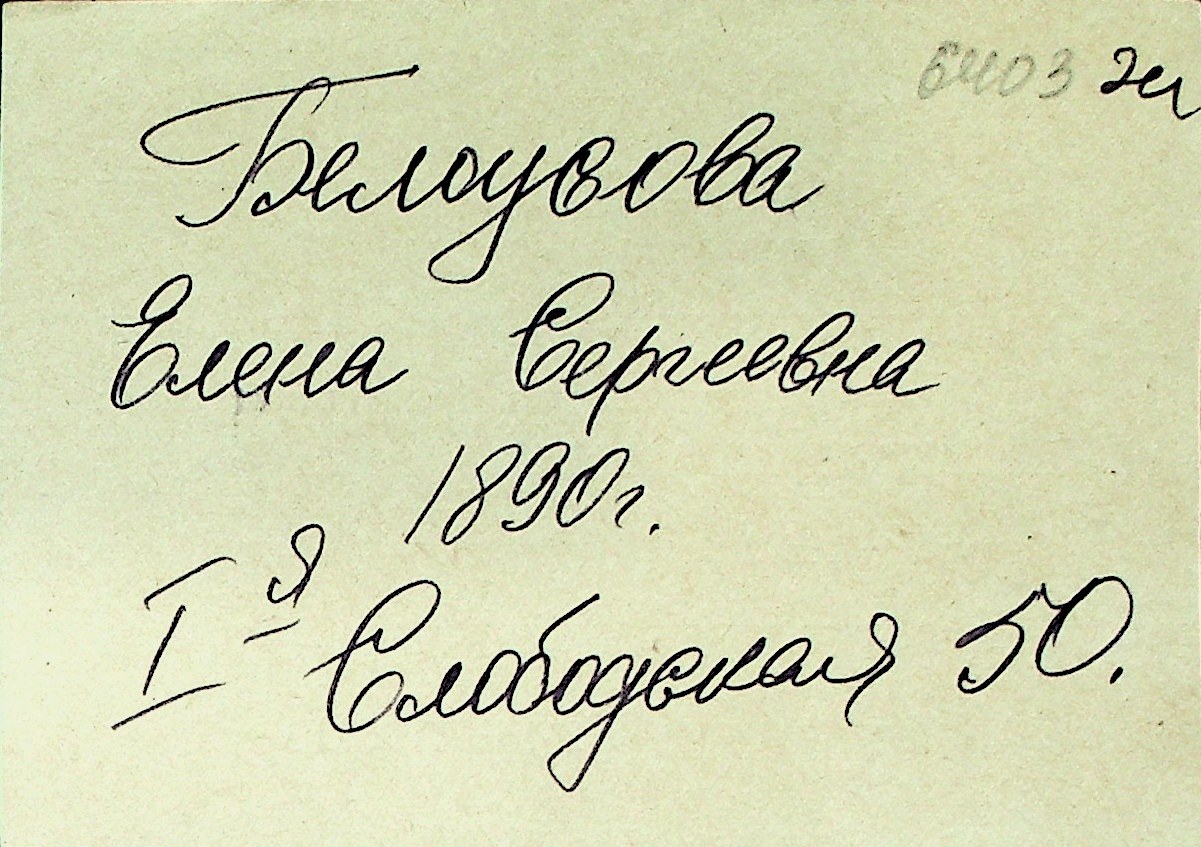 6403 Эл
Белоусова
Елена Сергеевна
1890г.
I-я Слободская 50.